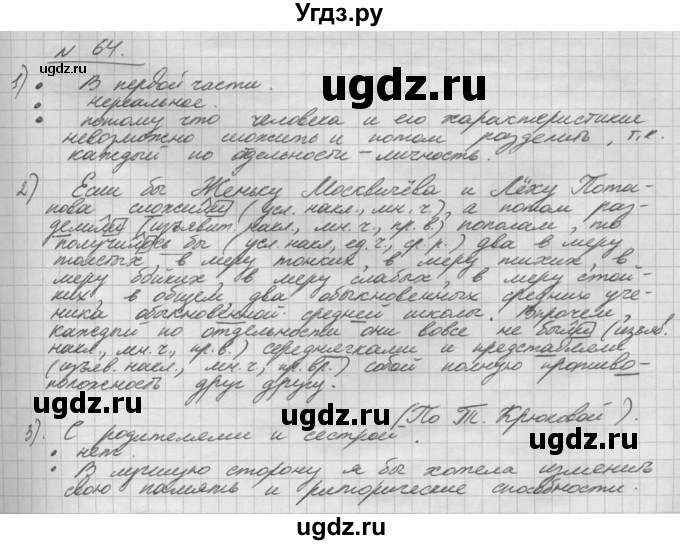 Угдз.ру
N 64.
1) • В первой части.
• нереальное.
• потому что человека и его характеристики
невозможно сложить и потом разделить, т.к.
каждый по отдельности – личность.
2) Если бы Женьку Москвичёва и Лёху Пота-
пова сложили (усл. накл., мн. ч.), а потом раз-
делили (изъявит. накл., мн. ч., пр. в.) пополам, то
получилось бы (усл. накл., ед. ч., ср. р.) два в меру
толстых, в меру тонких, в меру тихих, в
меру бойких, в меру слабых, в меру стой-
ких, в общем, два обыкновенных средних уче-
ника обыкновенной средней школы. Впрочем,
каждый по отдельности они вовсе не были (изъяв.
накл., мн. ч., пр. в.) середнячками и представляли
(изъяв. накл., мн. ч., пр. вр.) собой полную противо-
положность друг другу.
(По Т. Крюковой).
3). С родителями и сестрой.
• нет.
• В лучшую сторону я бы хотела изменить
свою память и риторические способности.
ugdz.ru
ugdz.ru
ugdz.ru
ugdz.ru
ugdz.ru
ugdz.ru
ugdz.ru
ugdz.ru
ugdz.ru
ugdz.ru
ugdz.ru